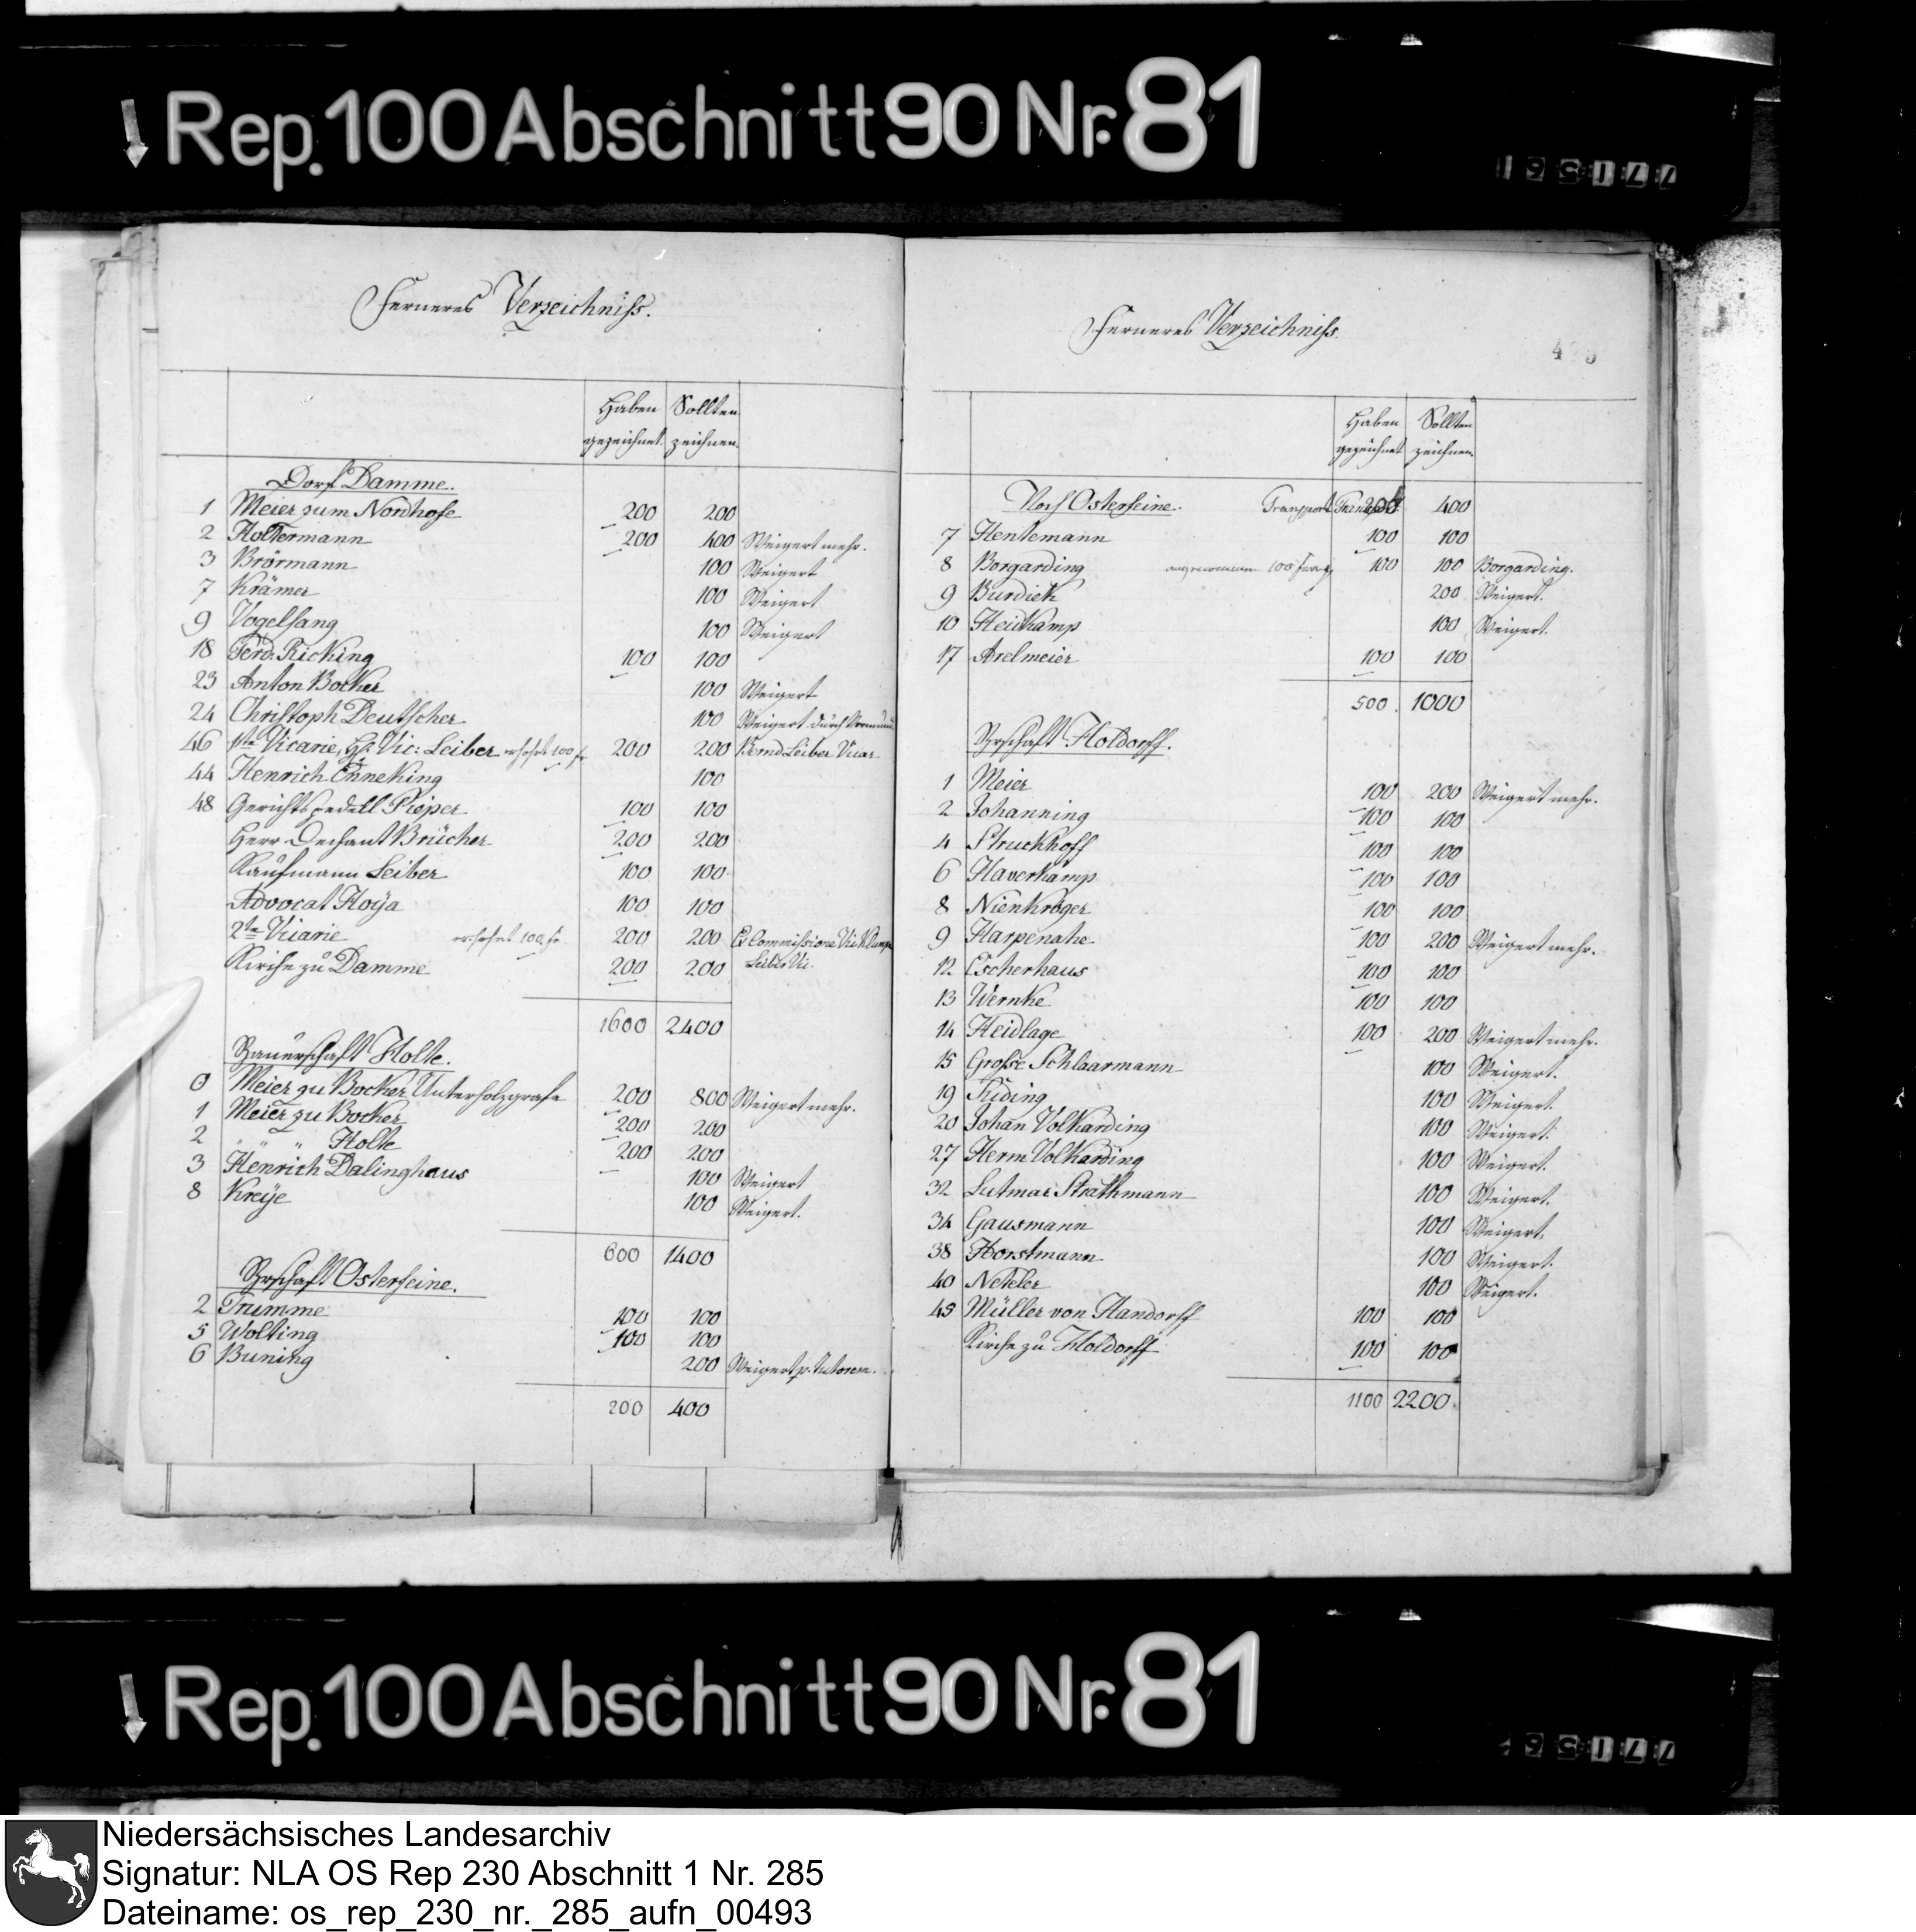 Rep. 100 Abschnitt 90 Nr. 81
Ferneres Verzeichniss.
Haben gezeichnet. Sollten zeichnen.
Dorf Damme.
1 Meier zum Nordhofe 200 200
2 Holtermann 200 400 Weigert mehr.
3 Brörmann 100 Weigert
7 Krämer 100 Weigert
9 Vogelsang 100 Weigert
18 Ferd. Ricking 100 100
23 Anton Bocker 100 Weigert
24 Christoph Deutscher 100 Weigert durch Vormund
46 1te Vicarie, Hr. Vic: Leiber erhohet 100 fr 200 200 Bernd Leiber Vicar.
44 Henrich Enneking 100
48 Gerichtspedell Pieper 100 100
Herr Dechant Brücher 200 200
Kaufmann Leiber 100 100
Advocat Hoÿa 100 100
2te Vicarie erhohet 100 fr. 200 200 Ex Commissione Vic
Leiber Vic.
Kirche zu Damme 200 200
1600 2400
Bauerschaft Holte.
0 Meier zu Bocker Unterholzgrafe 200 800 Weigert mehr.
1 Meier zu Bocker 200 200
2 " " " Holte 200 200
3 Henrich Dalinghaus 100 Weigert
8 Kreÿe 100 Weigert.
600 1400
Brschaft Osterfeine.
2 Trumme 100 100
5 Wolting 100 100
6 Buning 200 Weigert p. tutorem.
200 400
Ferneres Verzeichniss.
Haben gezeichnet Sollten zeichnen.
Noch Osterfeine. Transport 200 400
7 Hentemann 100 100
8 Borgarding angenommen 100 100 100 Borgarding.
9 Burdiek 200 Weigert.
10 Heidkamp 100 Weigert.
17 Arelmeier 100 100
500. 1000
Brschaft Holdorff.
1 Meier 100 200 Weigert mehr.
2 Johanning 100 100
4 Struckhoff 100 100
6 Haverkamp 100 100
8 Nienkröger 100 100
9 Harpenahe 100 200 Weigert mehr.
12 Escherhaus 100 100
13 Wernke 100 100
14 Heidlage 100 200 Weigert mehr.
15 Grosse Schlaarmann 100 Weigert.
19 Tüding 100 Weigert.
20 Johan Volkarding 100 Weigert.
27 Herm Volkarding 100 Weigert.
32 Lutmar Strathmann 100 Weigert.
34 Gausmann 100 Weigert.
38 Horstmann 100 Weigert.
40 Neteler 100 Weigert.
45 Müller von Handorff 100 100
Kirche zu Holdorff 100 100
1100 2200.
Rep. 100 Abschnitt 90 Nr. 81
Niedersächsisches Landesarchiv
Signatur: NLA OS Rep 230 Abschnitt 1 Nr. 285
Dateiname: os_rep_230_nr._285_aufn_00493